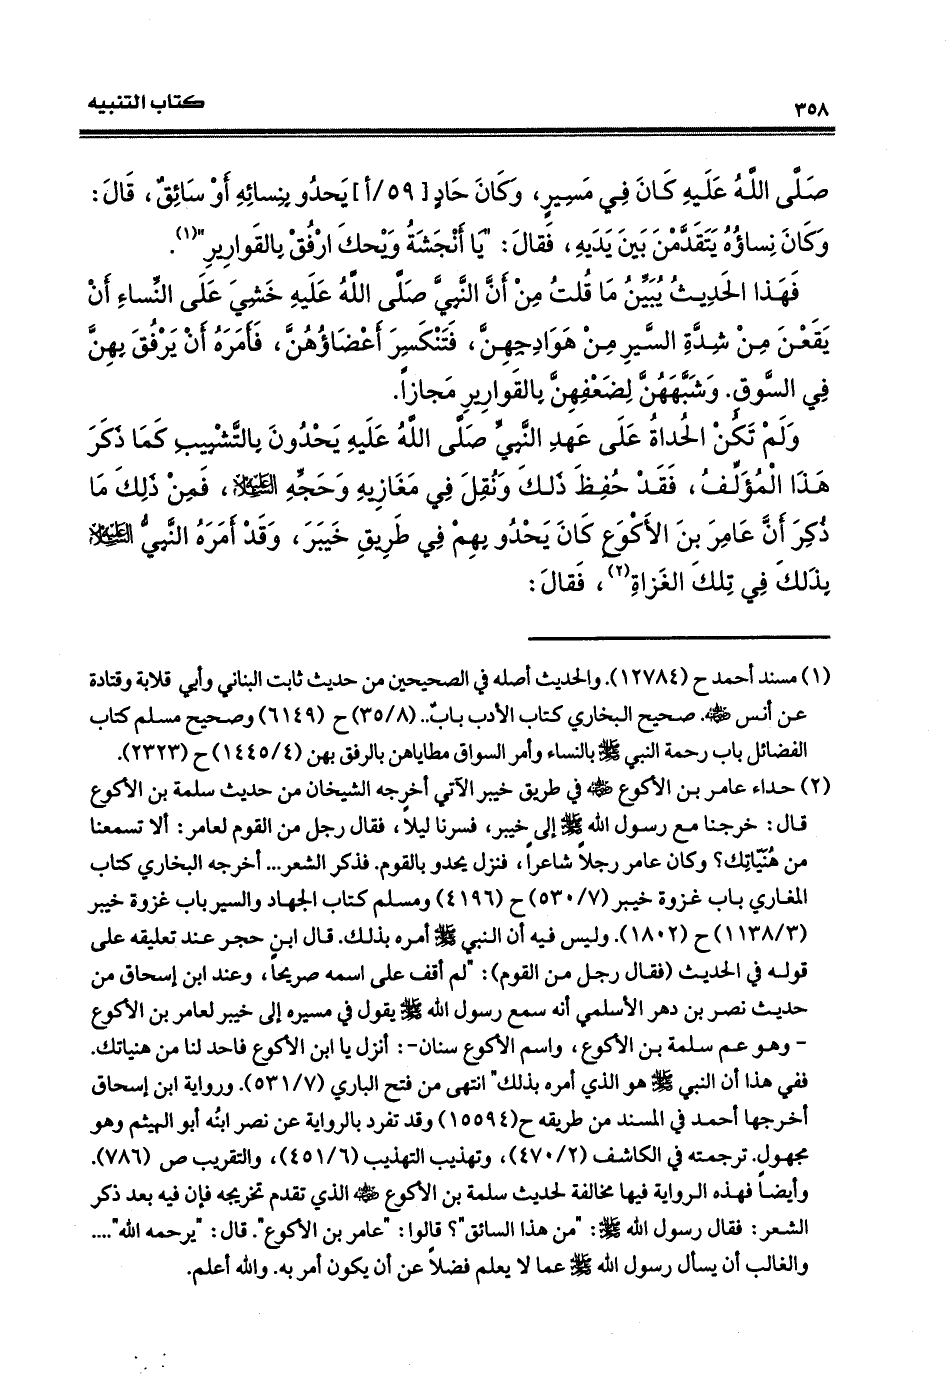 ٣٥٨
كتاب التنبيه
صَلَّى اللَّهُ عَلَيهِ كَانَ فِي مَسِيرٍ، وَكَانَ حَادٍ [٥٩/أ] يَحدُو بِنِسائِهِ أوْ سَائِقٌ، قَالَ:
وَكَانَ نِساؤُهُ يَتَقَدَّمْنَ بَينَ يَدَيهِ، فَقالَ: "يَا أَنْجَشَةُ وَيْحكَ ارْفُقْ بِالقَوارِيرِ"(١).
فَهَذا الحَدِيثُ يُبَيِّنُ مَا قُلتُ مِنْ أَنَّ النَّبِيَّ صَلَّى اللَّهُ عَلَيهِ خَشِيَ عَلَى النِّساءِ أَنْ
يَقَعْنَ مِنْ شِدَّةِ السَّيرِ مِنْ هَوَادِجِهِنَّ، فَتَنْكَسِرَ أَعْضَاؤُهُنَّ، فَأَمَرَهُ أَنْ يَرْفُقَ بِهِنَّ
فِي السَّوقِ. وَشَبَّهَهُنَّ لِضَعْفِهِنَّ بِالقَوارِيرِ مَجازاً.
وَلَمْ تَكُنْ الحُداةُ عَلَى عَهدِ النَّبِيِّ صَلَّى اللَّهُ عَلَيهِ يَحْدُونَ بِالتَّشْبِيبِ كَمَا ذَكَرَ
هَذَا الْمُؤَلِّفُ، فَقَدْ حُفِظَ ذَلكَ وَنُقِلَ فِي مَغَازِيهِ وَحَجِّهِ عليه السلام، فَمِنْ ذَلِكَ مَا
ذُكِرَ أَنَّ عَامِرَ بنَ الأَكْوَعِ كَانَ يَحْدُو بِهِمْ فِي طَرِيقِ خَيبَرَ، وَقَدْ أَمَرَهُ النَّبِيُّ عليه السلام
بِذَلكَ فِي تِلكَ الغَزاةِ(٢)، فَقالَ:
(١) مسند أحمد ح (١٢٧٨٤). والحديث أصله في الصحيحين من حديث ثابت البناني وأبي قلابة وقتادة
عن أنس رضي الله عنه. صحيح البخاري كتاب الأدب بابٌ.. (٣٥/٨) ح (٦١٤٩) وصحيح مسلم كتاب
الفضائل باب رحمة النبي ﷺ بالنساء وأمر السواق مطاياهن بالرفق بهن (١٤٤٥/٤) ح (٢٣٢٣).
(٢) حداء عامر بن الأكوع رضي الله عنه في طريق خيبر الآتي أخرجه الشيخان من حديث سلمة بن الأكوع
قال: خرجنا مع رسول الله ﷺ إلى خيبر، فسرنا ليلاً، فقال رجل من القوم لعامر: ألا تسمعنا
من هُنَيّاتِك؟ وكان عامر رجلاً شاعراً، فنزل يحدو بالقوم. فذكر الشعر... أخرجه البخاري كتاب
المغاري باب غزوة خيبر (٥٣٠/٧) ح (٤١٩٦) ومسلم كتاب الجهاد والسير باب غزوة خيبر
(١١٣٨/٣) ح (١٨٠٢). وليس فيه أن النبي ﷺ أمره بذلك. قال ابن حجر عند تعليقه على
قوله في الحديث (فقال رجل من القوم): "لم أقف على اسمه صريحاً، وعند ابن إسحاق من
حديث نصر بن دهر الأسلمي أنه سمع رسول الله ﷺ يقول في مسيره إلى خيبر لعامر بن الأكوع
- وهو عم سلمة بن الأكوع، واسم الأكوع سنان-: أنزل يا ابن الأكوع فاحد لنا من هنياتك.
ففي هذا أن النبي ﷺ هو الذي أمره بذلك" انتهى من فتح الباري (٥٣١/٧). ورواية ابن إسحاق
أخرجها أحمد في المسند من طريقه ح(١٥٥٩٤) وقد تفرد بالرواية عن نصر ابنُه أبو الهيثم وهو
مجهول. ترجمته في الكاشف (٤٧٠/٢)، وتهذيب التهذيب (٤٥١/٦)، والتقريب ص (٧٨٦).
وأيضاً فهذه الرواية فيها مخالفة لحديث سلمة بن الأكوع رضي الله عنه الذي تقدم تخريجه فإن فيه بعد ذكر
الشعر: فقال رسول الله ﷺ: "من هذا السائق"؟ قالوا: "عامر بن الأكوع". قال: "يرحمه الله"....
والغالب أن يسأل رسول الله ﷺ عما لا يعلم فضلاً عن أن يكون أمر به. والله أعلم.